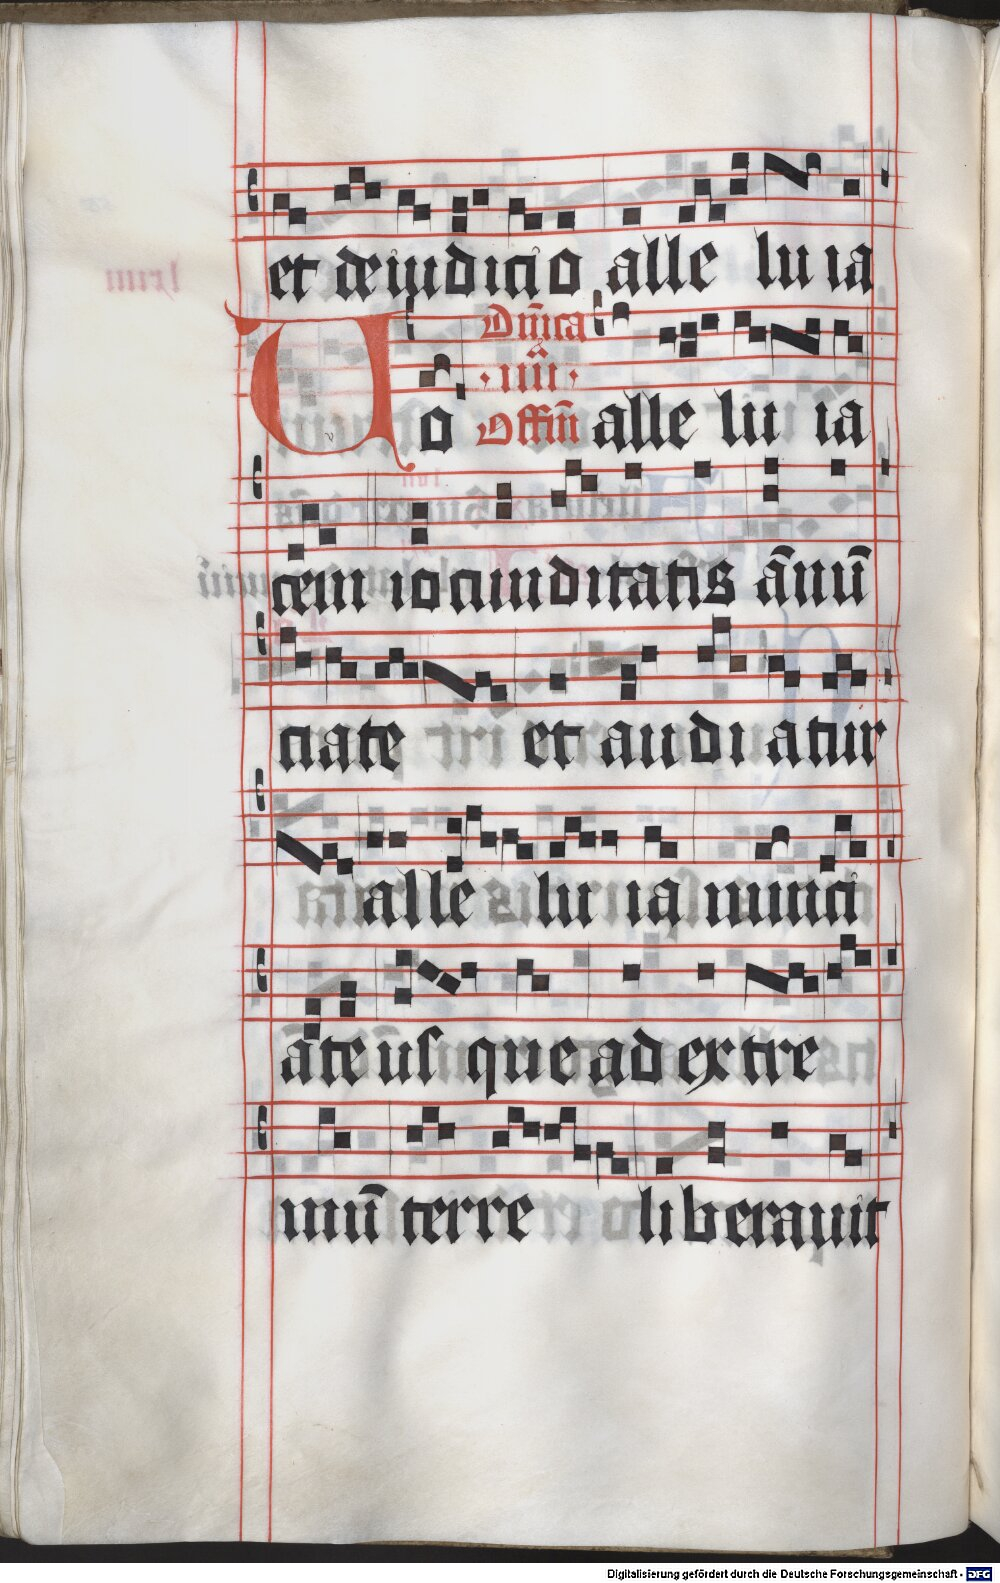 et de iudicio alle lu ia
Dn̄ica
·iiii·
Offm̄
Uo alle lu ia
cem iocunditatis ānū
ciate et audi atur
alle lu ia nunci
āte us que ad extre
mū terre liberauit
Digitalisierung gefördert durch die Deutsche Forschungsgemeinschaft - DFG